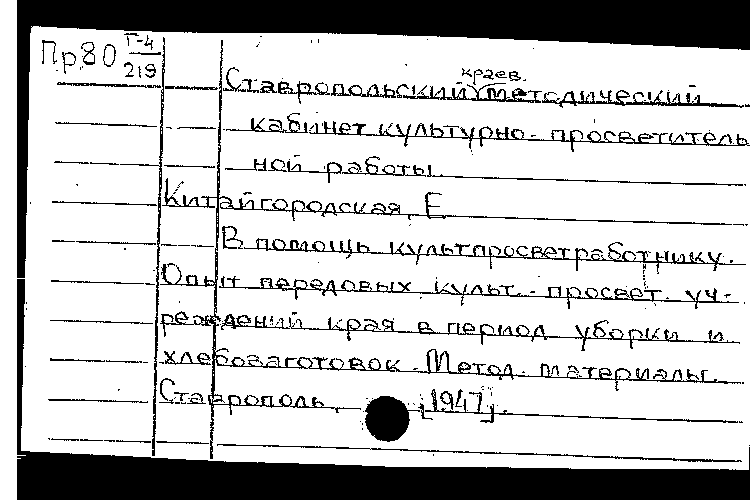 Пр80 Г-4
219
краев.
Ставропольский методический
кабинет культурно-просветитель
ной работы.
Китайгородская, Е
В помощь культпросветработнику.
Опыт передовых культ.-просвет. уч-
реждений края в период уборки и
хлебозаготовок. Метод. материалы.
Ставрополь, [1947].